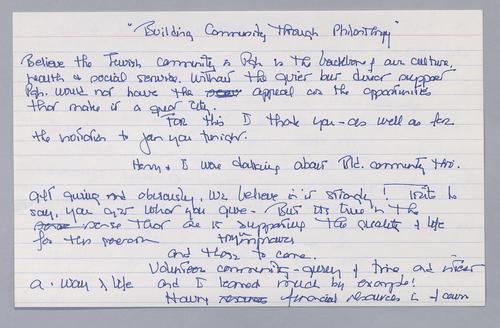 "Building Community Through Philanthropy"
Believe the Jewish community in Pgh. is the backbone of our culture,
health & social services. Without the quiet but donor support
Pgh. would not have the appeal or the opportunities
that make it a great city.
For this I thank you - as well as for
the invitation to join you tonight.
Henry & I were talking about Bld. community thro.
gift giving and obviously, we believe in it strongly! Trite to
say, you get what you give. But it's true in the
sense that one is supporting the quality of life
for this
and those to come.
Volunteer community - giving of time and
a way of life and I learned much by example!
Having financial resources is of